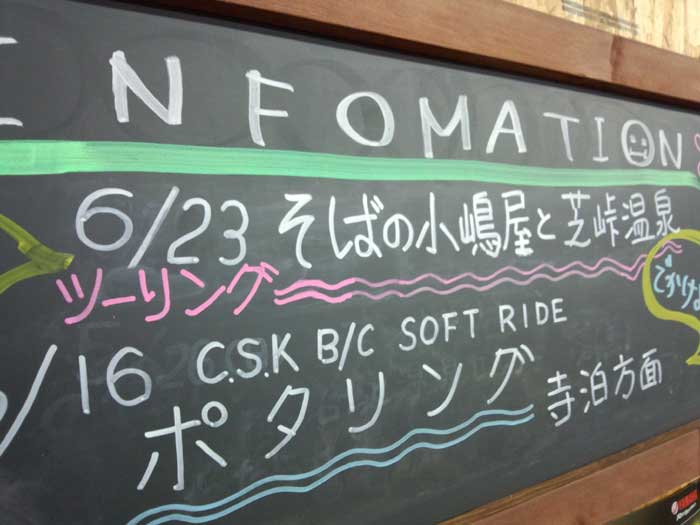 INFOMATION
6/23 そばの小嶋屋と芝峠温泉
ツーリング
/16 C.S.K B/C SOFT RIDE
ポタリング 寺泊方面